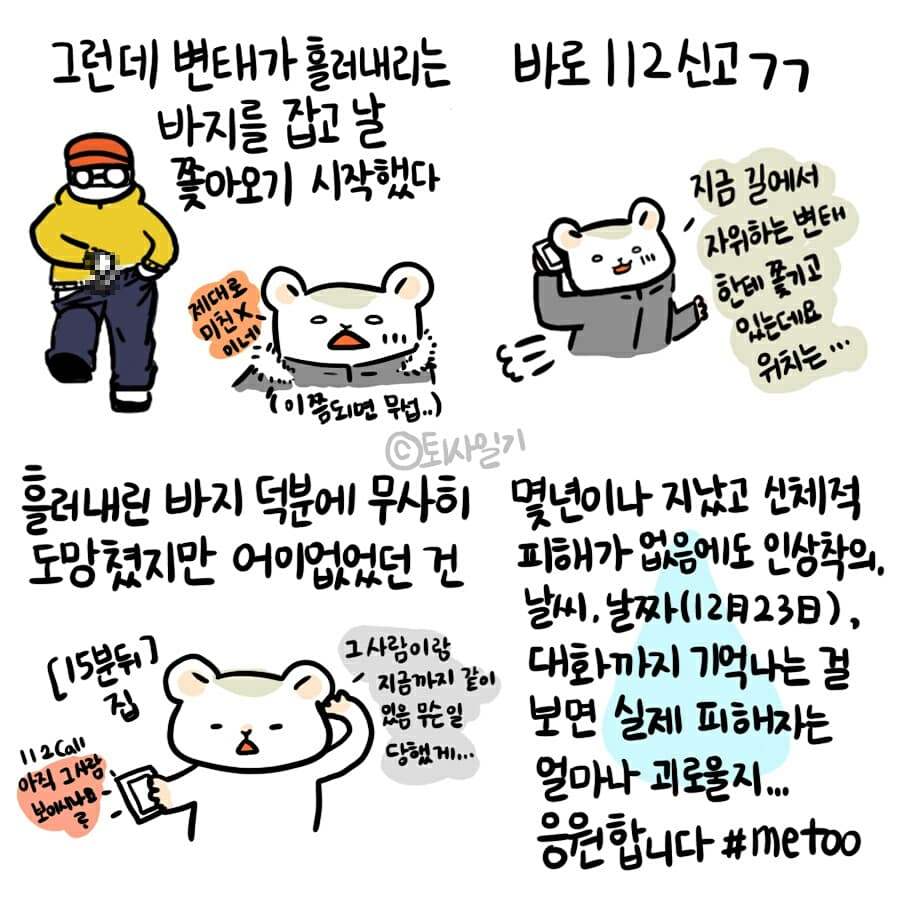 그런데 변태가 흘러내리는
바지를 잡고 날
쫓아오기 시작했다
제대로
미친X
이네
(이쯤되면 무섭..)
바로 112신고 ㄱㄱ
지금 길에서
자위하는 변태
한테 쫓기고
있는데요
위치는…
©토사일기
흘러내린 바지 덕분에 무사히
도망쳤지만 어이없었던 건
[15분뒤]
집
112call
아직 그사람
보이시나요
그사람이랑
지금까지 같이
있음 무슨일
당했게…
몇년이나 지났고 신체적
피해가 없음에도 인상착의,
날씨, 날짜(12月23日),
대화까지 기억나는 걸
보면 실제 피해자는
얼마나 괴로울지...
응원합니다 #metoo